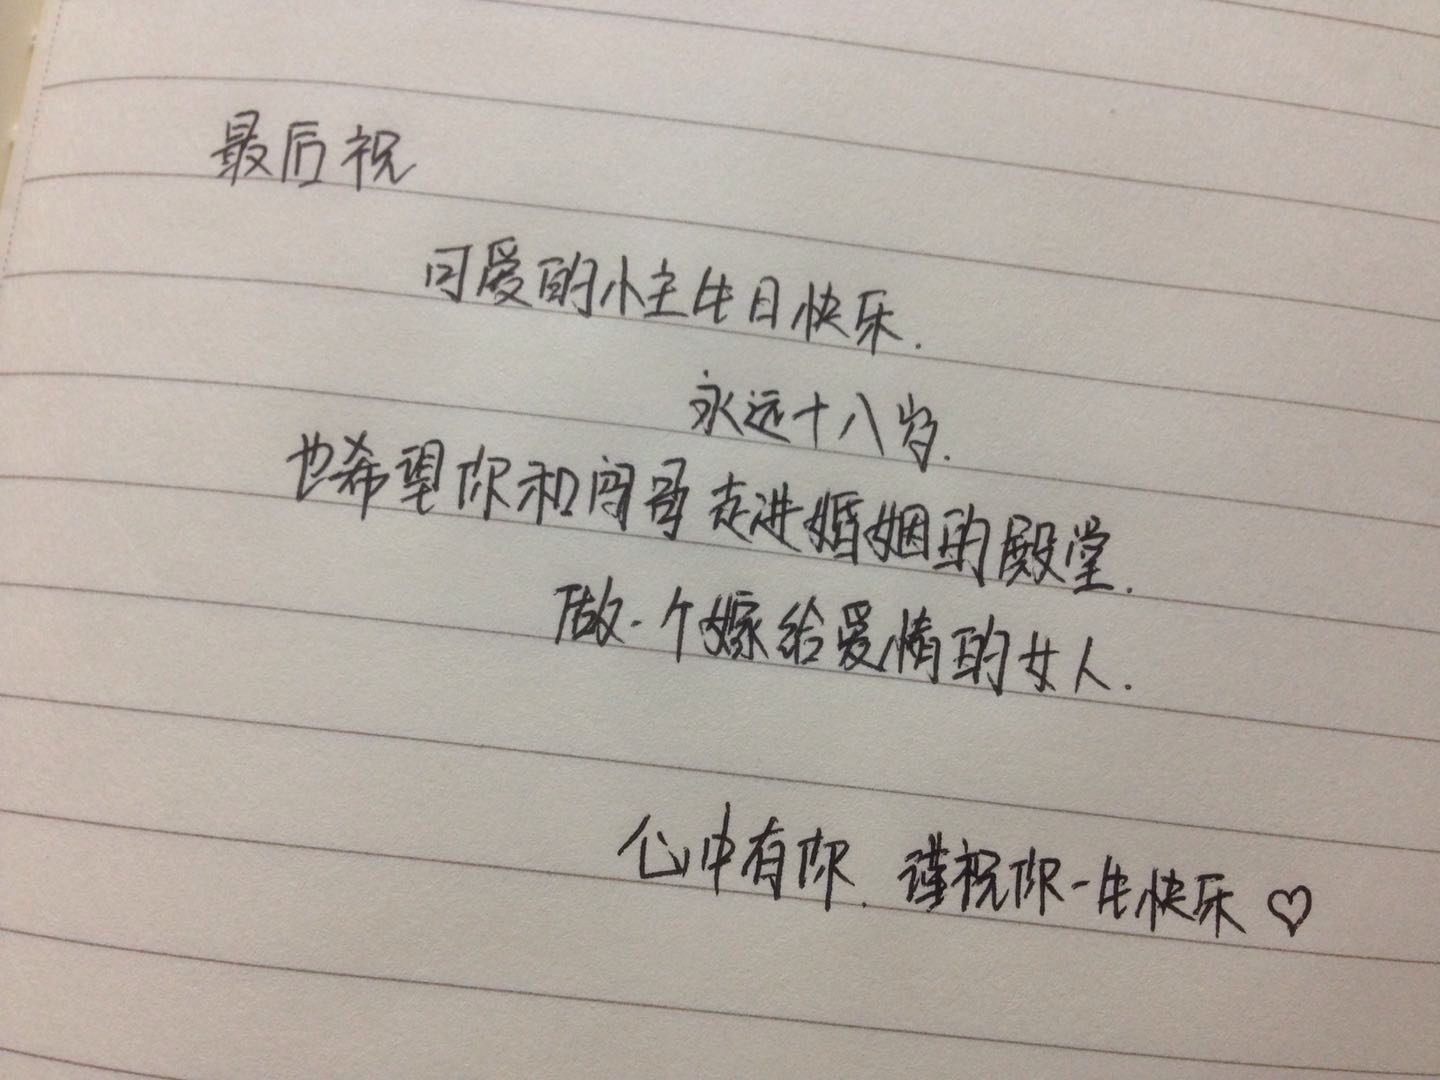 最后祝
可爱的小主生日快乐.
永远十八岁.
也希望你和闯哥走进婚姻的殿堂.
做一个嫁给爱情的女人.
心中有你.谨祝你一生快乐♡